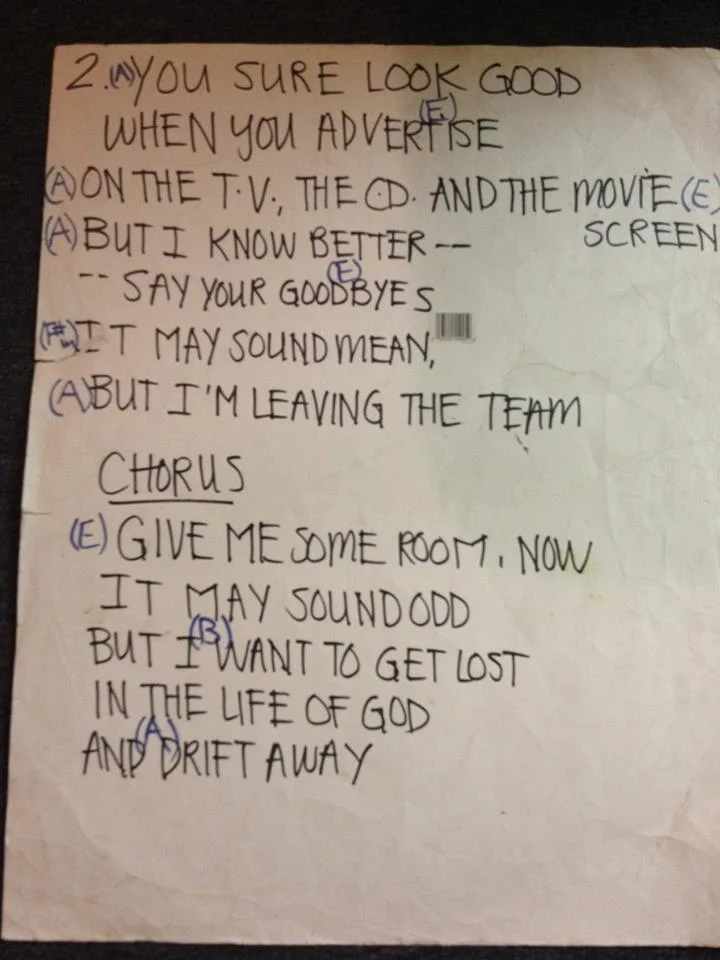 2. (A) YOU SURE LOOK GOOD
WHEN YOU ADVERTISE (E)
(A) ON THE T.V., THE CD. AND THE MOVIE (E)
SCREEN
(A) BUT I KNOW BETTER --
-- SAY YOUR GOODBYES (E)
(F#m) IT MAY SOUND MEAN,
(A) BUT I'M LEAVING THE TEAM
CHORUS
(E) GIVE ME SOME ROOM. NOW
IT MAY SOUND ODD
BUT I (B) WANT TO GET LOST
IN THE LIFE OF GOD
AND (A) DRIFT AWAY